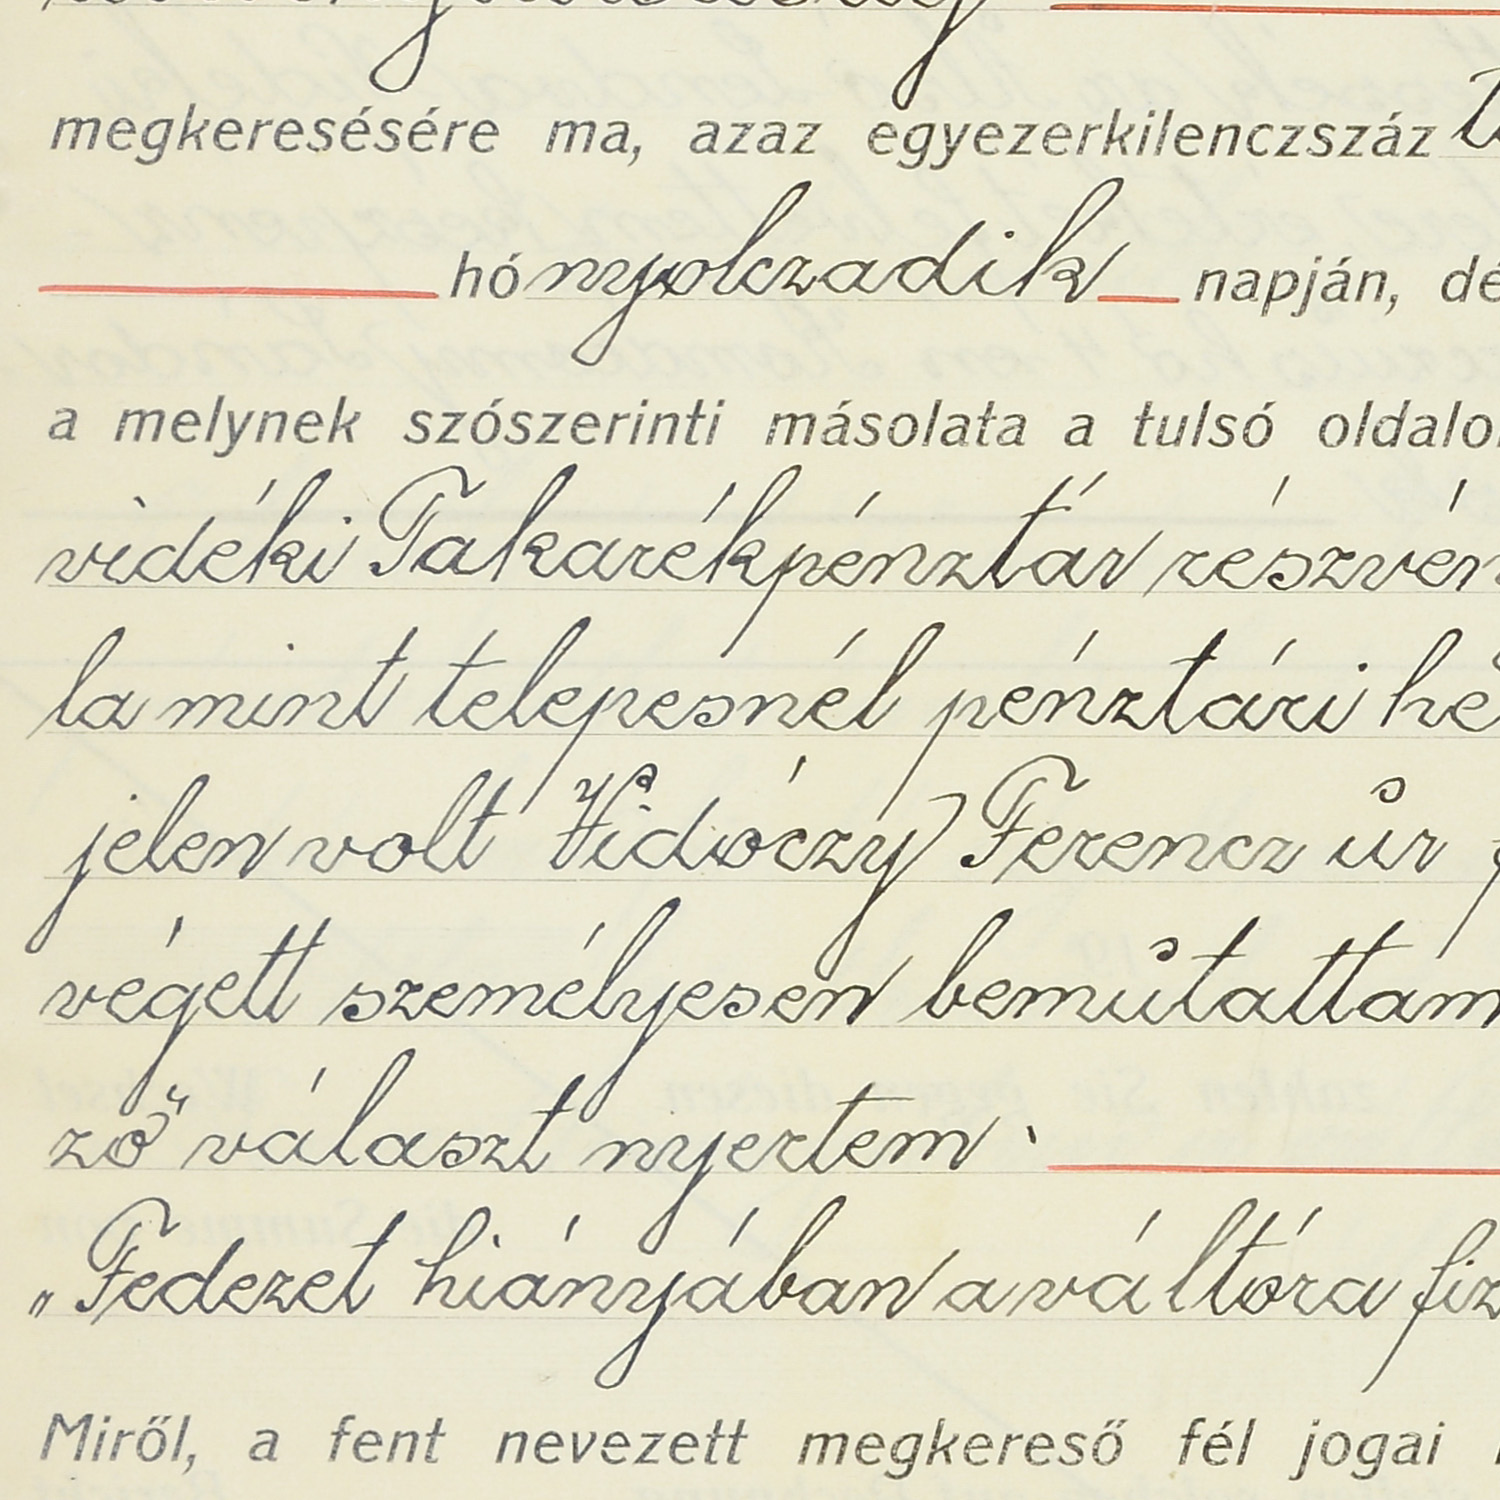 megkeresésére ma, azaz egyezerkilenczszáz
hó nyolczadik napján, dé
a melynek szószerinti másolata a tulsó oldalo
vidéki Takarékpénztár részvén
la mint telepesnél pénztári hé
jelen volt Vidóczy Ferencz úr
végett személyesen bemutattam
ző választ nyertem.
„Fedezet hiányában a váltóra fiz
Miről, a fent nevezett megkereső fél jogai